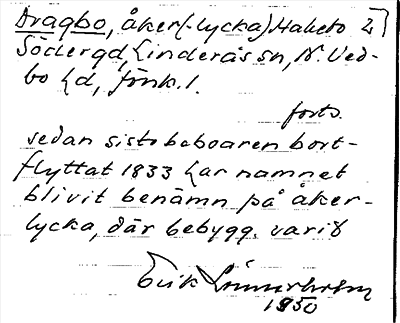 Dragbo, åker(-lycka) Haketo 2)
Södergd, Linderås sn, N. Ved-
bo hd, Jönk. l.
forts.
sedan sista beboaren bort-
flyttat 1833 har namnet
blivit benämn på åker-
lycka, där bebygg. varit
Erik
1950